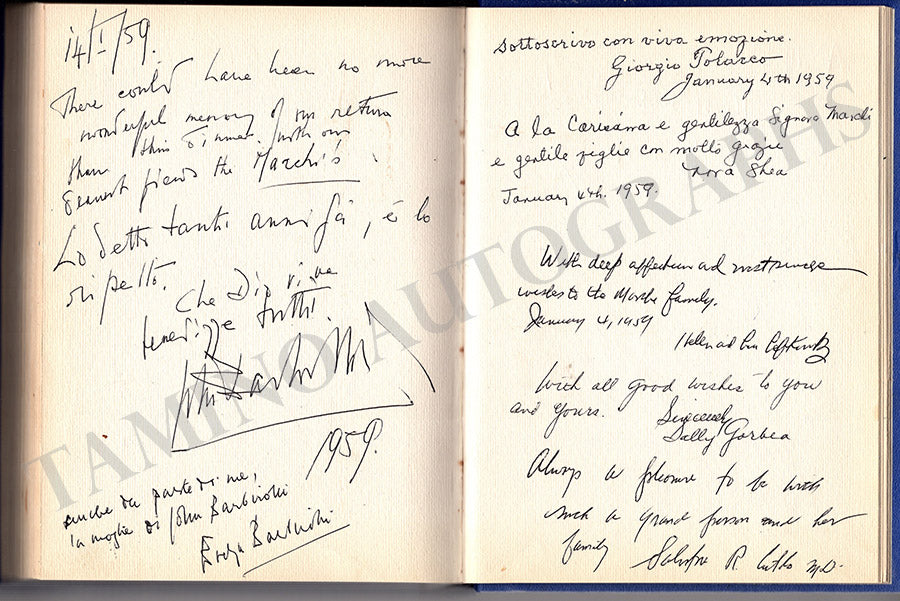 14/I/59.
There could have been no more
wonderful memory of our return
than this dinner with our
dearest friends the Marchi's
Lo detti tanti anni fà, è lo
ripetto.
Che Dio vi
benedizze tutti.
John Barbirolli
1959.
anche da parte di me,
la moglie di John Barbirolli
Evelyn Barbirolli
sottoscrivo con viva emozione.
Giorgio Polacco
January 4th 1959
A la Carisima e gentilezza Signora Marchi
e gentile figlie con molto grazie
Nora Shea
January 4th. 1959.
With deep affection and most sincere
wishes to the Marchi family.
January 4, 1959
Helen ad
With all good wishes to you
and yours.
Sincerely
Sally Gorbea
Always a pleasure to be with
such a grand person and her
family
Salvatore R. M.D.
TAMINO AUTOGRAPHS